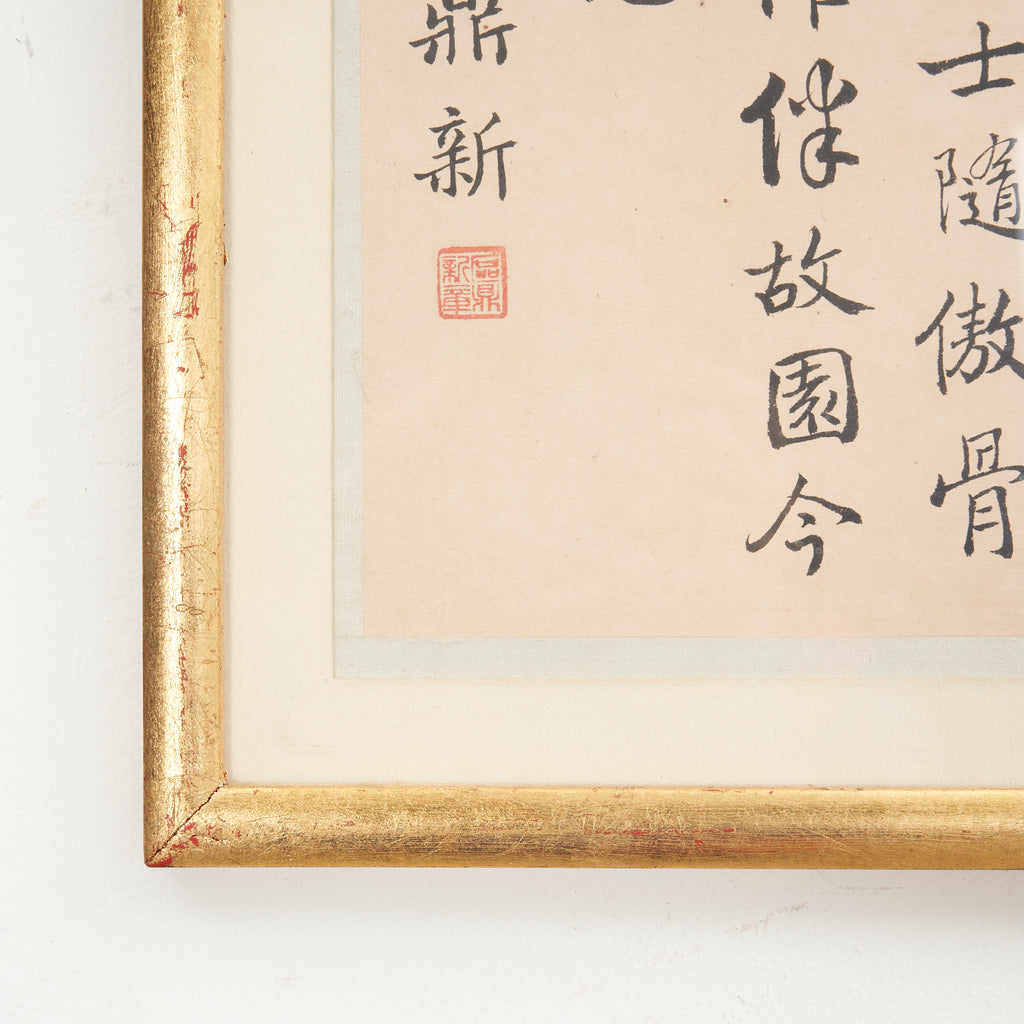 士隨傲骨
伴故園今
鼎新
品鼎新章